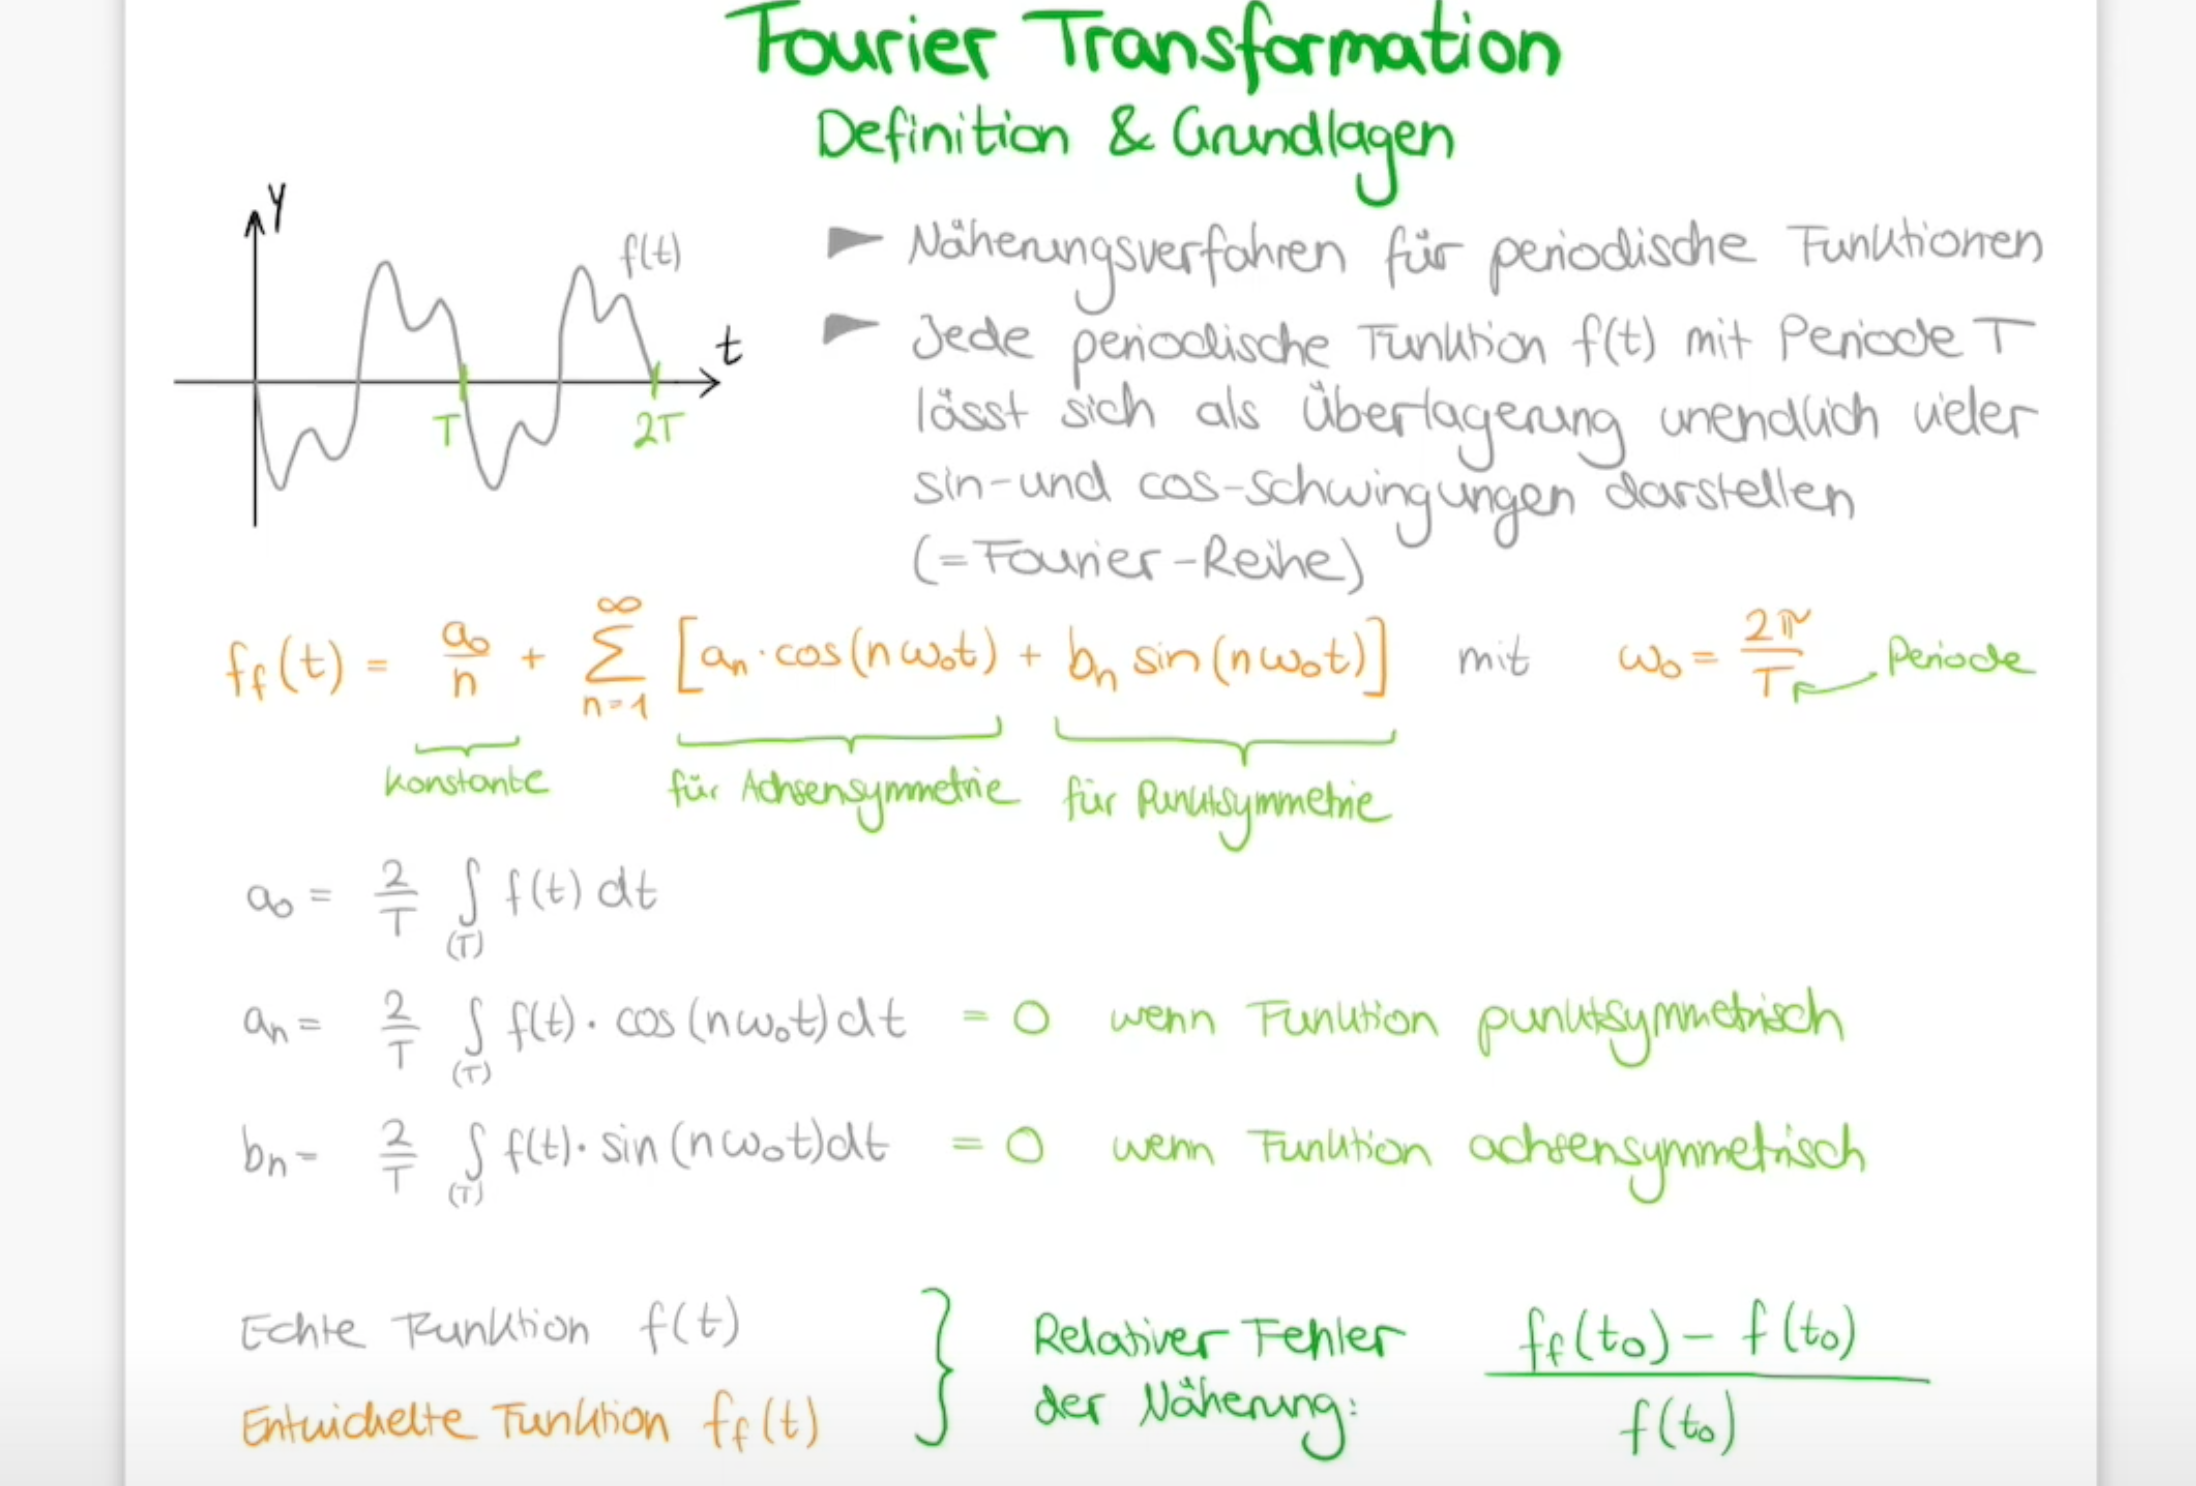 Fourier Transformation
Definition & Grundlagen
y
f(t)
t
T
2T
► Näherungsverfahren für periodische Funktionen
► Jede periodische Funktion f(t) mit Periode T
lässt sich als Überlagerung unendlich vieler
sin-und cos-schwingungen darstellen
(=Fourier-Reihe)
f_f(t) = a₀/n + ∞∑n=1 [aₙ · cos(nω₀t) + bₙ sin(nω₀t)] mit ω₀ = 2π/T Periode
Konstante für Achsensymmetrie für Punktsymmetrie
a₀ = 2/T ∫(T) f(t) dt
aₙ = 2/T ∫(T) f(t) · cos(nω₀t)dt = 0 wenn Funktion punktsymmetrisch
bₙ = 2/T ∫(T) f(t) · sin(nω₀t)dt = 0 wenn Funktion achsensymmetrisch
Echte Funktion f(t)
Entwickelte Funktion f_f(t)
Relativer Fehler
der Näherung:
f_f(t₀) - f(t₀)
f(t₀)